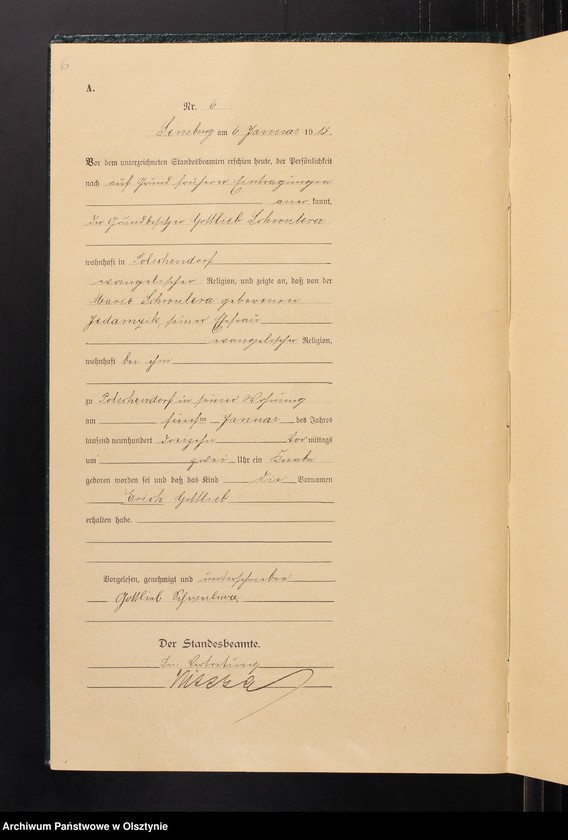 6
A.
Nr. 6
Sensburg am 6 Januar 1913.
Vor dem unterzeichneten Standesbeamten erschien heute, der Persönlichkeit
nach auf Grund früherer Eintragungen
aner kannt,
der Grundbesitzer Gottlieb
wohnhaft in Polschendorf
evangelischer Religion, und zeigte an, daß von der
Marie geborenen
Jedamzik seiner Ehefrau
evangelischer Religion,
wohnhaft bei ihm
zu Polschendorf in seiner Wohnung
am fünften Januar des Jahres
tausend neunhundert dreizehn Vor mittags
um zwei Uhr ein Knabe
geboren worden sei und daß das Kind die Vornamen
Erich Gottlieb
erhalten habe.
Vorgelesen, genehmigt und unterschrieben
Gottlieb
Der Standesbeamte.
In Vertretung
Archiwum Państwowe w Olsztynie